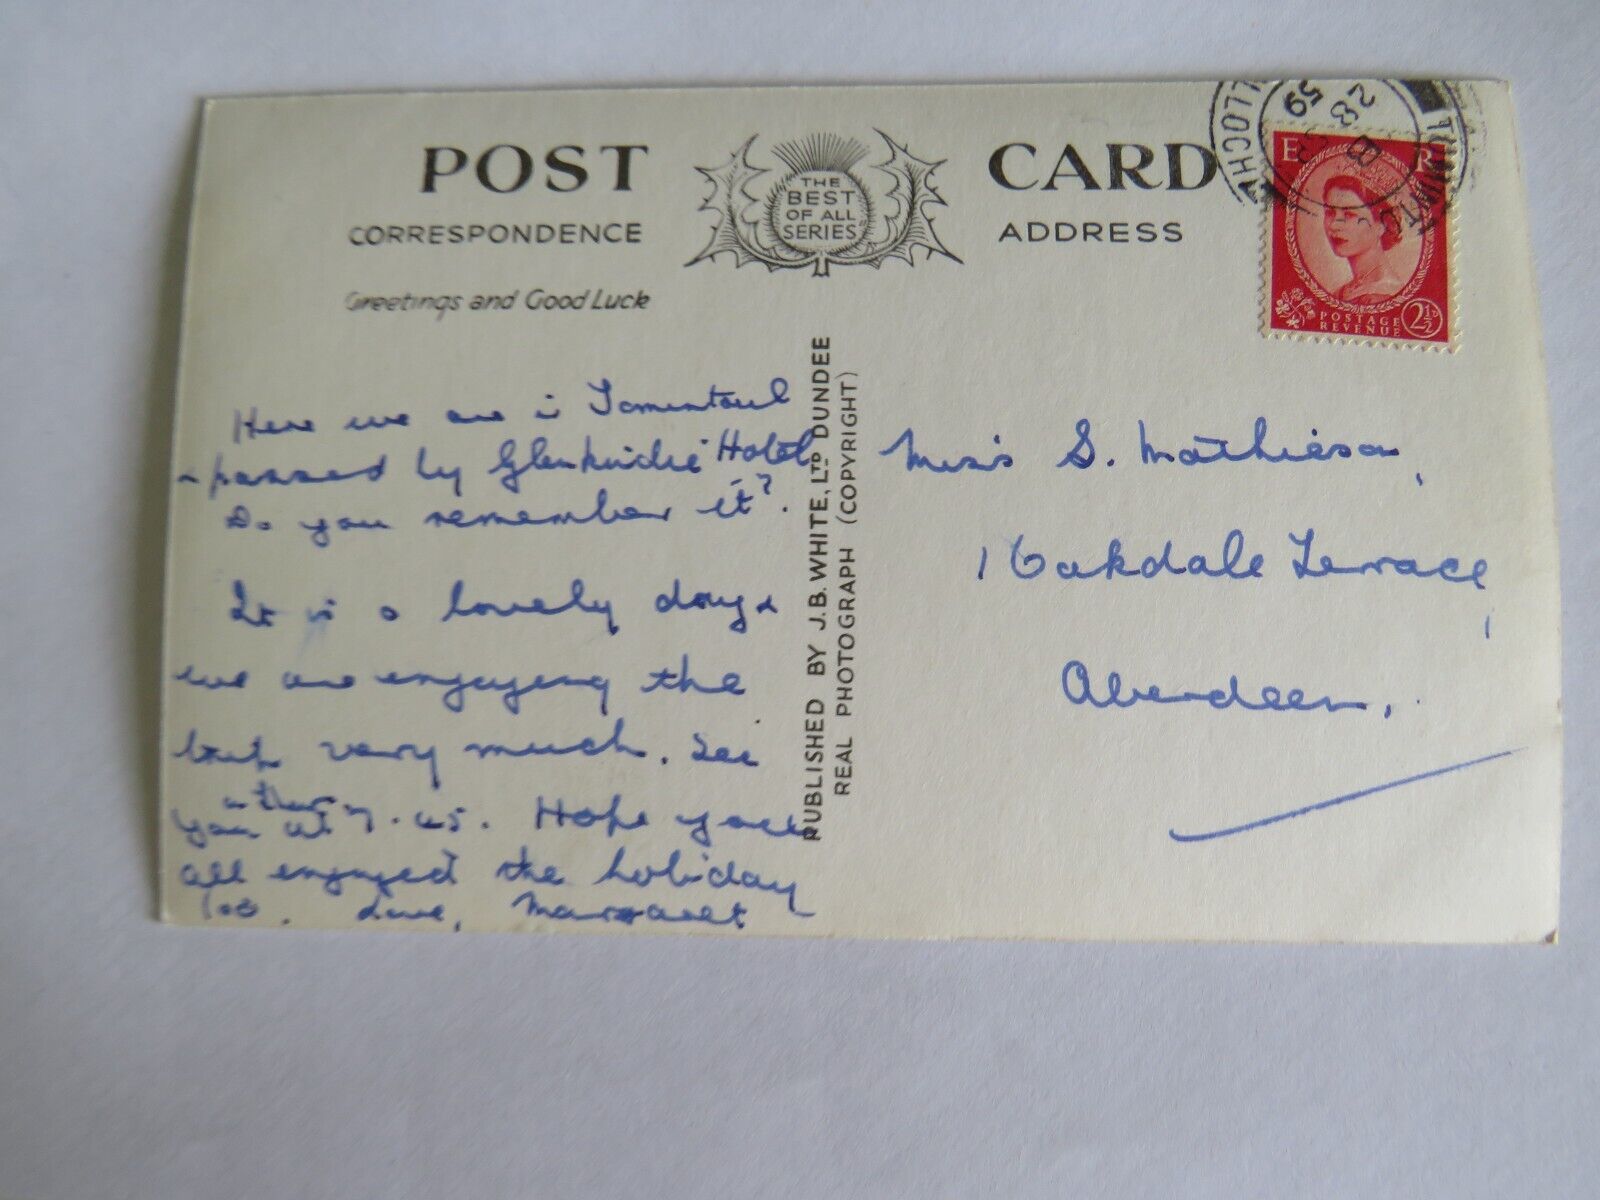 POST CARD
CORRESPONDENCE
ADDRESS
THE
BEST
OF ALL
SERIES
Greetings and Good Luck
E R
POSTAGE
REVENUE
2½D
59
28
PUBLISHED BY J.B. WHITE, LTD DUNDEE
REAL PHOTOGRAPH (COPYRIGHT)
Here we are in Tomintoul
+ passed by Glenkindie Hotel
Do you remember it?
It is a lovely day +
we are enjoying the
trip very much. See
you at 7.45. Hope you
all enjoyed the holiday
too. Love, Margaret
Miss S. Mathieson,
16 Oakdale Terrace,
Aberdeen.